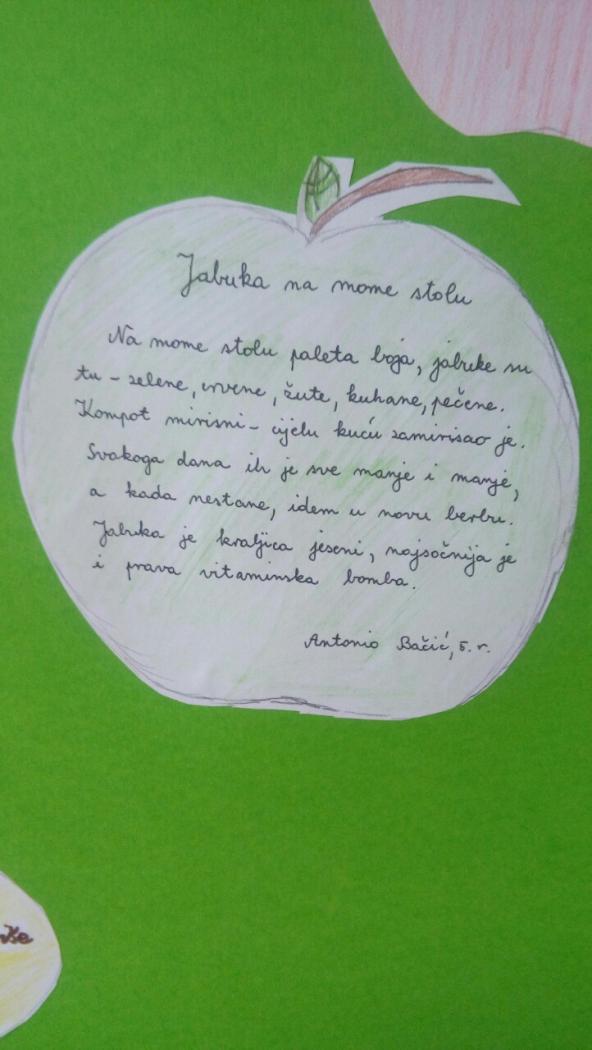 Jabuka na mome stolu
Na mome stolu paleta boja, jabuke su
tu - zelene, crvene, žute, kuhane, pečene.
Kompot mirisni - cijelu kuću zamirisao je.
Svakoga dana ih je sve manje i manje,
a kada nestane, idem u novu berbu.
Jabuka je kraljica jeseni, najsočnija je
i prava vitaminska bomba.
Antonio Bačić, 5. r.